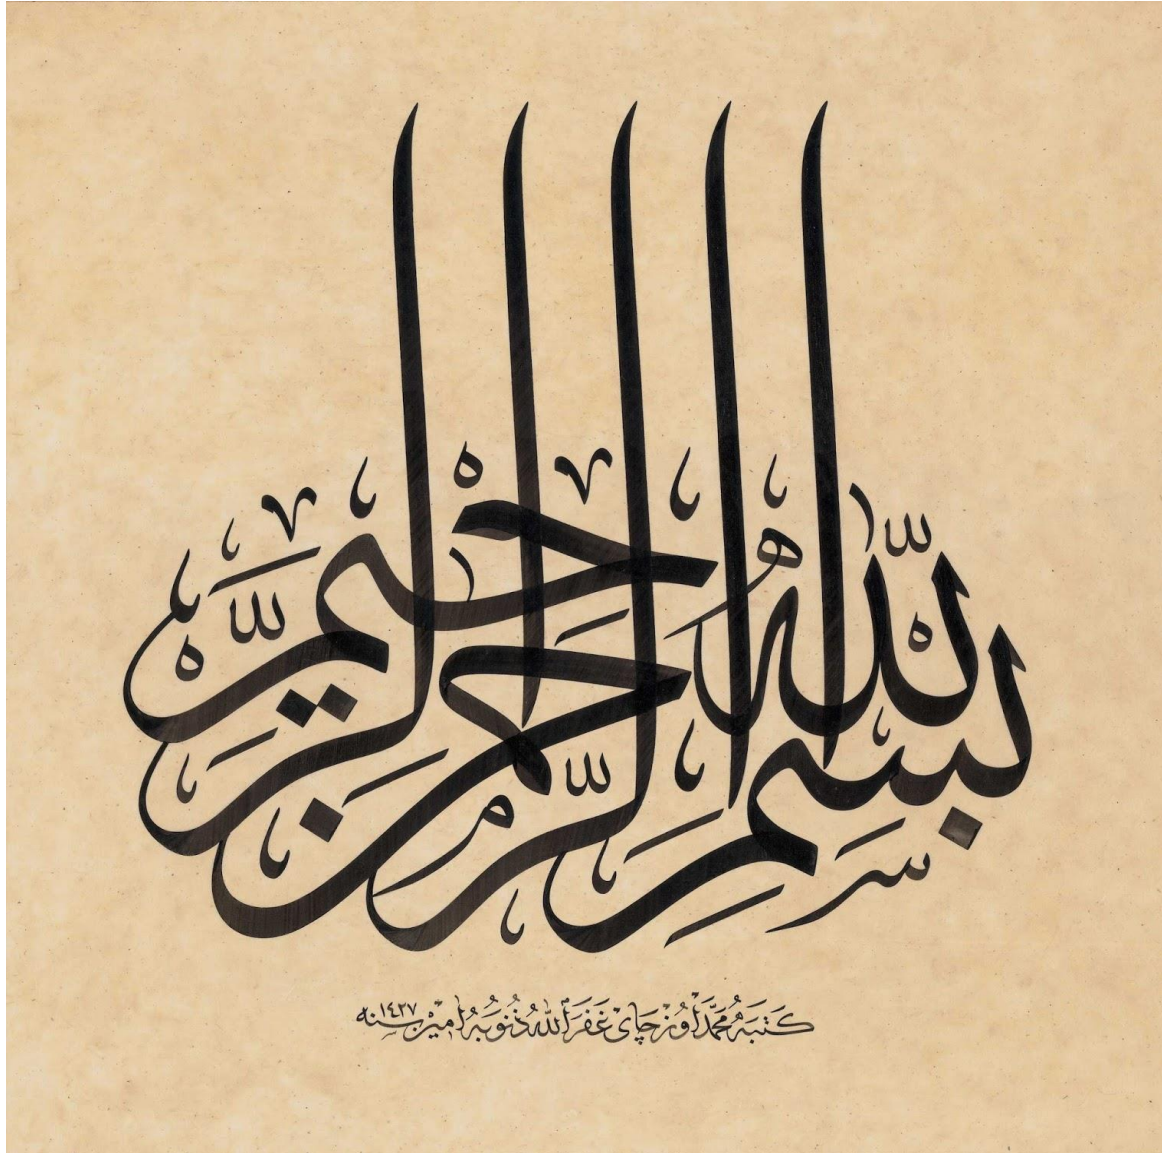 بسم الله الرحمن الرحيم
كَتَبَهُ مُحَمَّد اوزچاى غَفَرَ اللهُ ذُنُوبَهُ امين سنه ١٤٢٧